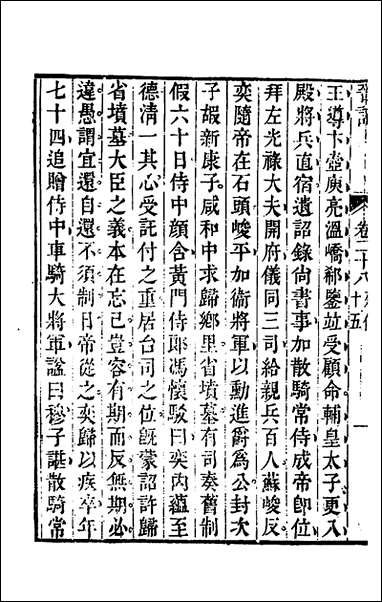 卷二十八
十五
王導卞壼庾亮溫嶠郗鑒並受顧命輔皇太子更入
殿將兵直宿遺詔錄尚書事加散騎常侍成帝卽位
拜左光祿大夫開府儀同三司給親兵百人蘇峻反
奕隨帝在石頭峻平加衞將軍以勳進爵爲公封次
子嘏新康子咸和中求歸鄉里省墳墓有司奏舊制
假六十日侍中顏含黃門侍郎馮懷駁曰奕內蘊至
德清一其心受託付之重居台司之位旣蒙詔許歸
省墳墓大臣之義本在忘己豈容有期而反無期必
違愚謂宜還自還不須制日帝從之奕歸以疾卒年
七十四追贈侍中車騎大將軍諡曰穆子諶散騎常